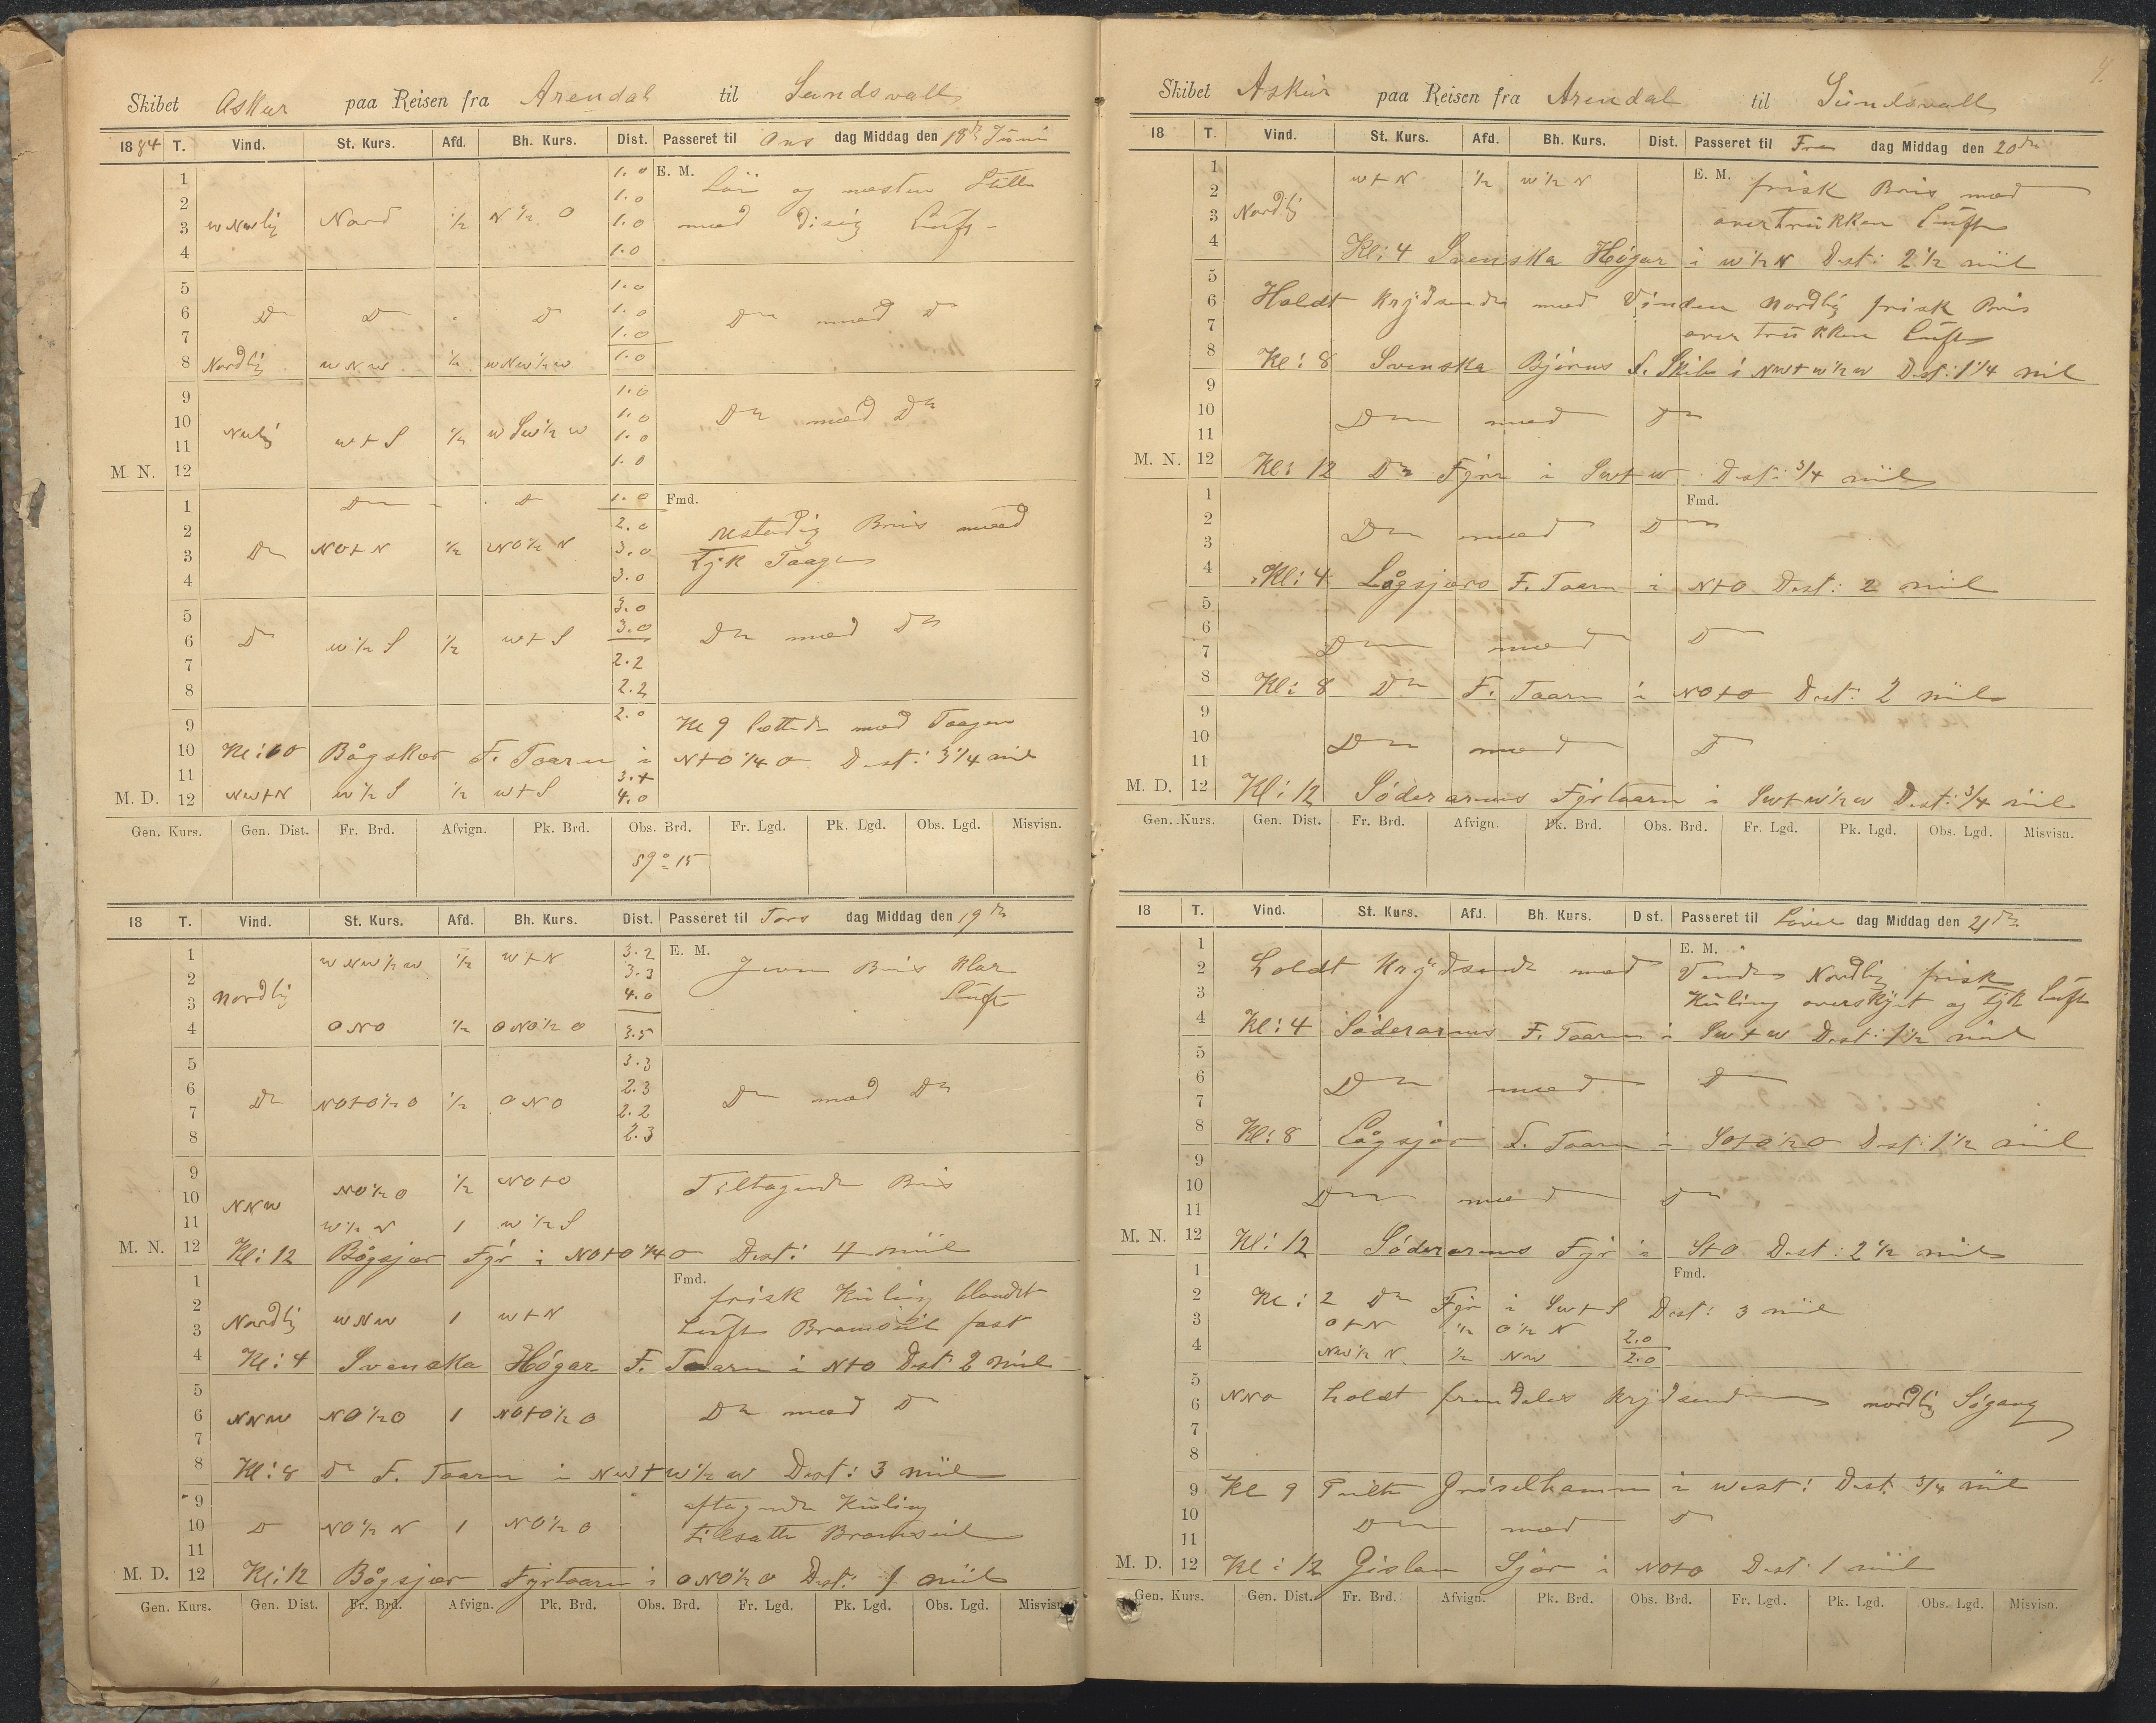 Skibet Askur paa Reisen fra Arendal til Sundsvall
1884 T. Vind. St. Kurs. Afd. Bh. Kurs. Dist. Passeret til Ons dag Middag den 18de Juni
1 1.0 E. M. Lör og næsten Stille
2 1.0
3 WNWlig Nord ½ N½O 1.0 med disig Luft
4 1.0
5 1.0
6 Do Do Do 1.0 Do med Do
7 1.0
8 Nordlig WNW ½ WNW½W 1.0
9 1.0
10 1.0 Do med Do
11 NWlig W+S ½ WSW½W 1.0
M. N. 12 1.0
1 Do Do 1.0 Fmd.
2 2.0 ustadig Bris med
3 Do NO+N ½ NO½N 3.0 tyk Taage
4 3.0
5 3.0
6 Do W½S ½ W+S 3.0 Do med Do
7 2.2
8 2.2
9 2.0 Kl 9 lettede med Taagen
10 Kl: 10 Bågskær F. Taarn i N+O¼O Dist: 3¼ mil
11 3.4
M. D. 12 NW+N W½S ½ W+S 4.0
Gen. Kurs. Gen. Dist. Fr. Brd. Afvign. Pk. Brd. Obs. Brd. Fr. Lgd. Pk. Lgd. Obs. Lgd. Misvisn.
59° 15
18 T. Vind. St. Kurs. Afd. Bh. Kurs. Dist. Passeret til Tors dag Middag den 19de
1 WNW½W ½ W+N 3.2 E. M. Jevn Bris klar
2 3.3
3 Nordlig 4.0 Luft
4 ONO ½ ONO½O 3.5
5 3.3
6 Do NO+O½O ½ ONO 2.3 Do med Do
7 2.2
8 2.3
9
10 NNW NO½O ½ NO+O Tiltagende Bris
11 W½N 1 W½S
M. N. 12 Kl: 12 Bågsjær Fyr i NO+O¼O Dist: 4 miil
1 Fmd. frisk Kuling blandet
2
3 Nordlig WNW 1 W+N Luft Bramseil fast
4 Kl: 4 Svenska Högar F. Taarn i N+O Dist 2 miil
5
6 NNW NO½O 1 NO+O½O Do med Do
7
8 Kl: 8 Do F. Taarn i NW+W½W Dist: 3 miil
9 aftagende Kuling
10 Do NO½N 1 NO½O tilsatte Bramseil
11
M. D. 12 Kl: 12 Bågsjær Fyrtaarn i ONO½O Dist: 1 miil
Gen. Kurs. Gen. Dist. Fr. Brd. Afvign. Pk. Brd. Obs. Brd. Fr. Lgd. Pk. Lgd. Obs. Lgd. Misvisn.
Skibet Askur paa Reisen fra Arendal til Sundsvall
18 T. Vind. St. Kurs. Afd. Bh. Kurs. Dist. Passeret til Fre dag Middag den 20de
1 W+N ½ W½N E. M. frisk Bris med
2
3 Nordlig overtrukken Luft
4 Kl: 4 Svenska Högar i W½N Dist: 2½ miil
5
6 Holdt Krydsende med Vinden Nordlig frisk Bris
7 overtrukken Luft
8 Kl: 8 Svenska Björns F. Skib i NW+W½W Dist: 1¼ mil
9
10 Do med Do
11
M. N. 12 Kl: 12 Do Fyr i SW+W Dist: ¾ miil
1 Fmd.
2 Do med Do
3
4 Kl: 4 Lågsjærs F. Taarn i N+O Dist: 2 miil
5
6 Do med Do
7
8 Kl: 8 Do F. Taarn i NO+O Dist: 2 miil
9
10 Do med Do
11
M. D. 12 Kl: 12 Söderarms Fyrtaarn i SW+W½W Dist: ¾ miil
Gen. Kurs. Gen. Dist. Fr. Brd. Afvign. Pk. Brd. Obs. Brd. Fr. Lgd. Pk. Lgd. Obs. Lgd. Misvisn.
18 T. Vind. St. Kurs. Afd. Bh. Kurs. Dist. Passeret til Löver dag Middag den 21de
1 E. M.
2 holdt Krydsende med Vinden Nordlig frisk
3 Kuling overskyet og tyk Luft
4 Kl: 4 Söderarms F. Taarn i SW+W Dist: 1½ miil
5
6 Do med Do
7
8 Kl: 8 Lågsjær F. Taarn i SO+O½O Dist: 1½ miil
9
10 Do med Do
11
M. N. 12 Kl: 12 Söderarms Fyr i S+O Dist: 2½ miil
1 Fmd.
2 Kl: 2 Do Fyr i SW+S Dist: 3 miil
3 O+N ½ O½N 2.0
4 NW½N ½ NW 2.0
5
6 NNO holdt fremdeles Krydsende nordlig Sögang
7
8
9 Kl 9 Peilte Gröselhamn i West: Dist. ¾ miil
10 Do med Do
11
M. D. 12 Kl: 12 Gislan Sjær i NO+O Dist: 1 miil
Gen. Kurs. Gen. Dist. Fr. Brd. Afvign. Pk. Brd. Obs. Brd. Fr. Lgd. Pk. Lgd. Obs. Lgd. Misvisn.